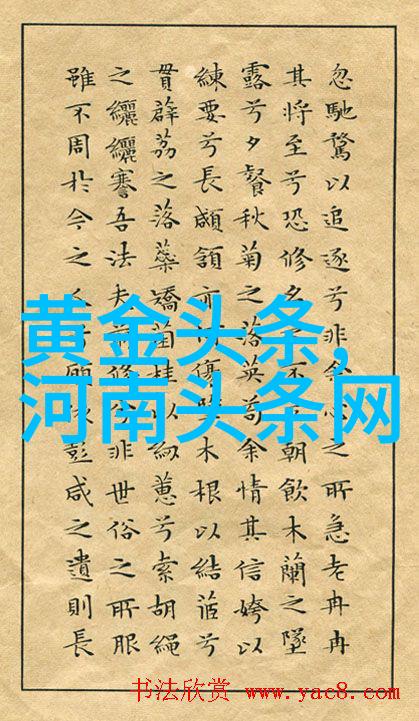 忽馳騖以追逐兮非余心之所急老冉冉
其將至兮恐修名不朝飲木蘭之墜
露兮夕餐秋菊之落英苟余情其信姱以
練要兮長顑頷亦傷木根以結茝兮
貫薜荔之落蘂矯菌桂以紉蕙兮索胡繩
之纚纚謇吾法夫前修兮非世俗之所服
雖不周於今之人兮願依彭咸之遺則長
黄金头条,
河南头条网
书法欣赏 www.yac8.com